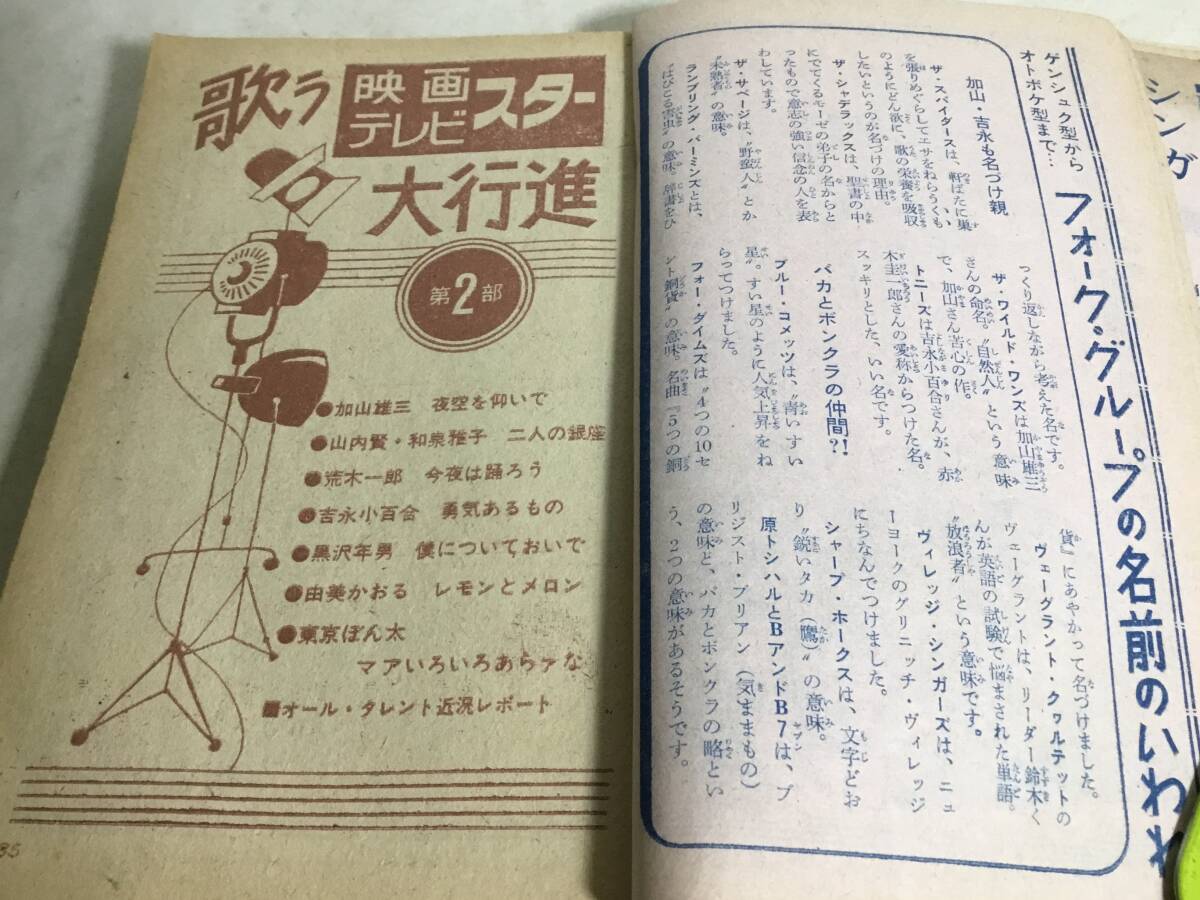 歌う
映画
テレビ
スター
大行進
第2部
●加山雄三 夜空を仰いで
●山内賢・和泉雅子 二人の銀座
●荒木一郎 今夜は踊ろう
●吉永小百合 勇気あるもの
●黒沢年男 僕についておいで
●由美かおる レモンとメロン
●東京ぼん太
マアいろいろあらァな
■オール・タレント近況レポート
35
ゲンシュク型から
オトボケ型まで…
フォーク・グループの名前のいわ
加山・吉永も名づけ親
ザ・スパイダースは、軒ばたに巣
を張りめぐらしてエサをねらうくも
のようにどん欲に、歌の栄養を吸収
したいというのが名づけの理由。
ザ・シャデラックスは、聖書の中
にでてくるモーゼの弟子の名からと
ったもので意志の強い信念の人を表
わしています。
ザ・サベージは、〝野蛮人〟とか
〝未熟者〟の意味。
ランブリング・バーミンズとは、
〝はびこる害虫〟の意味。辞書をひ
つくり返しながら考えた名です。
ザ・ワイルド・ワンズは加山雄三
さんの命名。〝自然人〟という意味
で、加山さん苦心の作。
トニーズは吉永小百合さんが、赤
木圭一郎さんの愛称からつけた名。
スッキリとした、いい名です。
バカとボンクラの仲間?!
ブルー・コメッツは、〝青いすい
星〟。すい星のように人気上昇をね
らってつけました。
フォー・ダイムズは〝4つの10セ
ント銅貨〟の意味。名曲『5つの銅
貨』にあやかって名づけました。
ヴェーグラント・クヮルテットの
ヴェーグラントは、リーダー鈴木く
んが英語の試験で悩まされた単語。
〝放浪者〟という意味です。
ヴィレッジ・シンガーズは、ニュ
ーヨークのグリニッチ・ヴィレッジ
にちなんでつけました。
シャープ・ホークスは、文字どお
り〝鋭いタカ(鷹)〟の意味。
原トシハルとBアンドB7は、ブ
リジスト・ブリアン(気ままもの)
の意味と、バカとボンクラの略とい
う、2つの意味があるそうです。
シング